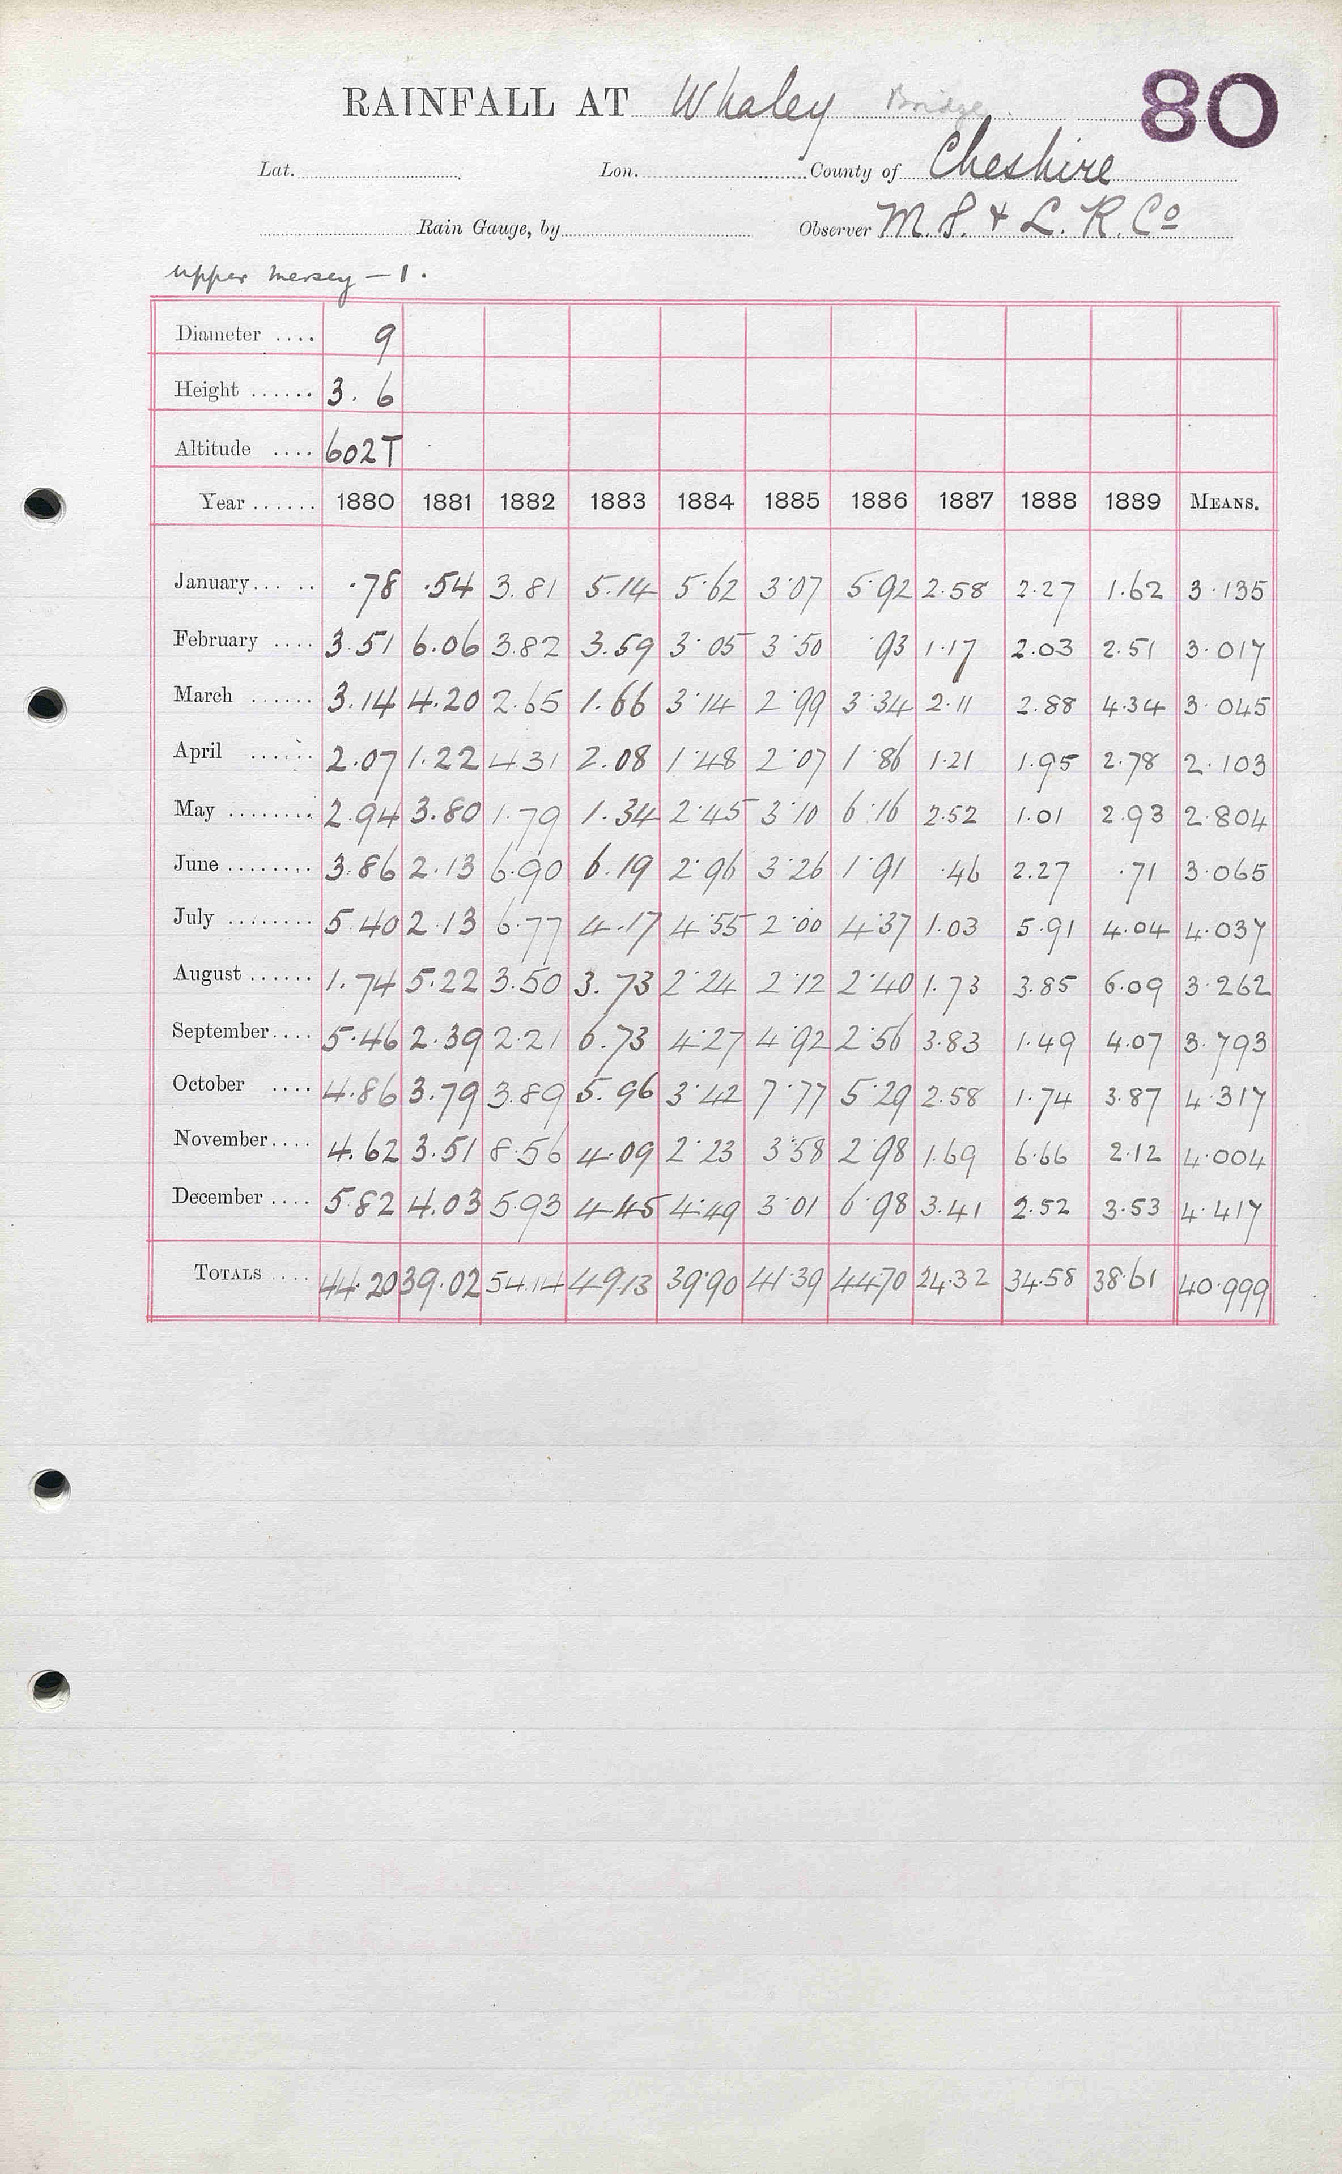 RAINFALL AT Whaley Bridge 80
Lat. Lon. County of Cheshire
Rain Gauge, by Observer M. S. & L. R. Co
Upper Mersey - 1.
Diameter .... 9
Height ...... 3. 6
Altitude .... 602T
Year ...... 1880 1881 1882 1883 1884 1885 1886 1887 1888 1889 MEANS.
January... .. .78 .54 3.81 5.14 5.62 3.07 5.92 2.58 2.27 1.62 3.135
February .... 3.51 6.06 3.82 3.59 3.05 3.50 .93 1.17 2.03 2.51 3.017
March ...... 3.14 4.20 2.65 1.66 3.14 2.99 3.34 2.11 2.88 4.34 3.045
April ...... 2.07 1.22 4.31 2.08 1.48 2.07 1.86 1.21 1.95 2.78 2.103
May ........ 2.94 3.80 1.79 1.34 2.45 3.10 6.16 2.52 1.01 2.93 2.804
June ........ 3.86 2.13 6.90 6.19 2.96 3.26 1.91 .46 2.27 .71 3.065
July ........ 5.40 2.13 6.77 4.17 4.55 2.00 4.37 1.03 5.91 4.04 4.037
August ...... 1.74 5.22 3.50 3.73 2.24 2.12 2.40 1.73 3.85 6.09 3.262
September.... 5.46 2.39 2.21 6.73 4.27 4.92 2.56 3.83 1.49 4.07 3.793
October .... 4.86 3.79 3.89 5.96 3.42 7.77 5.29 2.58 1.74 3.87 4.317
November.... 4.62 3.51 8.56 4.09 2.23 3.58 2.98 1.69 6.66 2.12 4.004
December .... 5.82 4.03 5.93 4.45 4.49 3.01 6.98 3.41 2.52 3.53 4.417
TOTALS .... 44.20 39.02 54.14 49.13 39.90 41.39 44.70 24.32 34.58 38.61 40.999